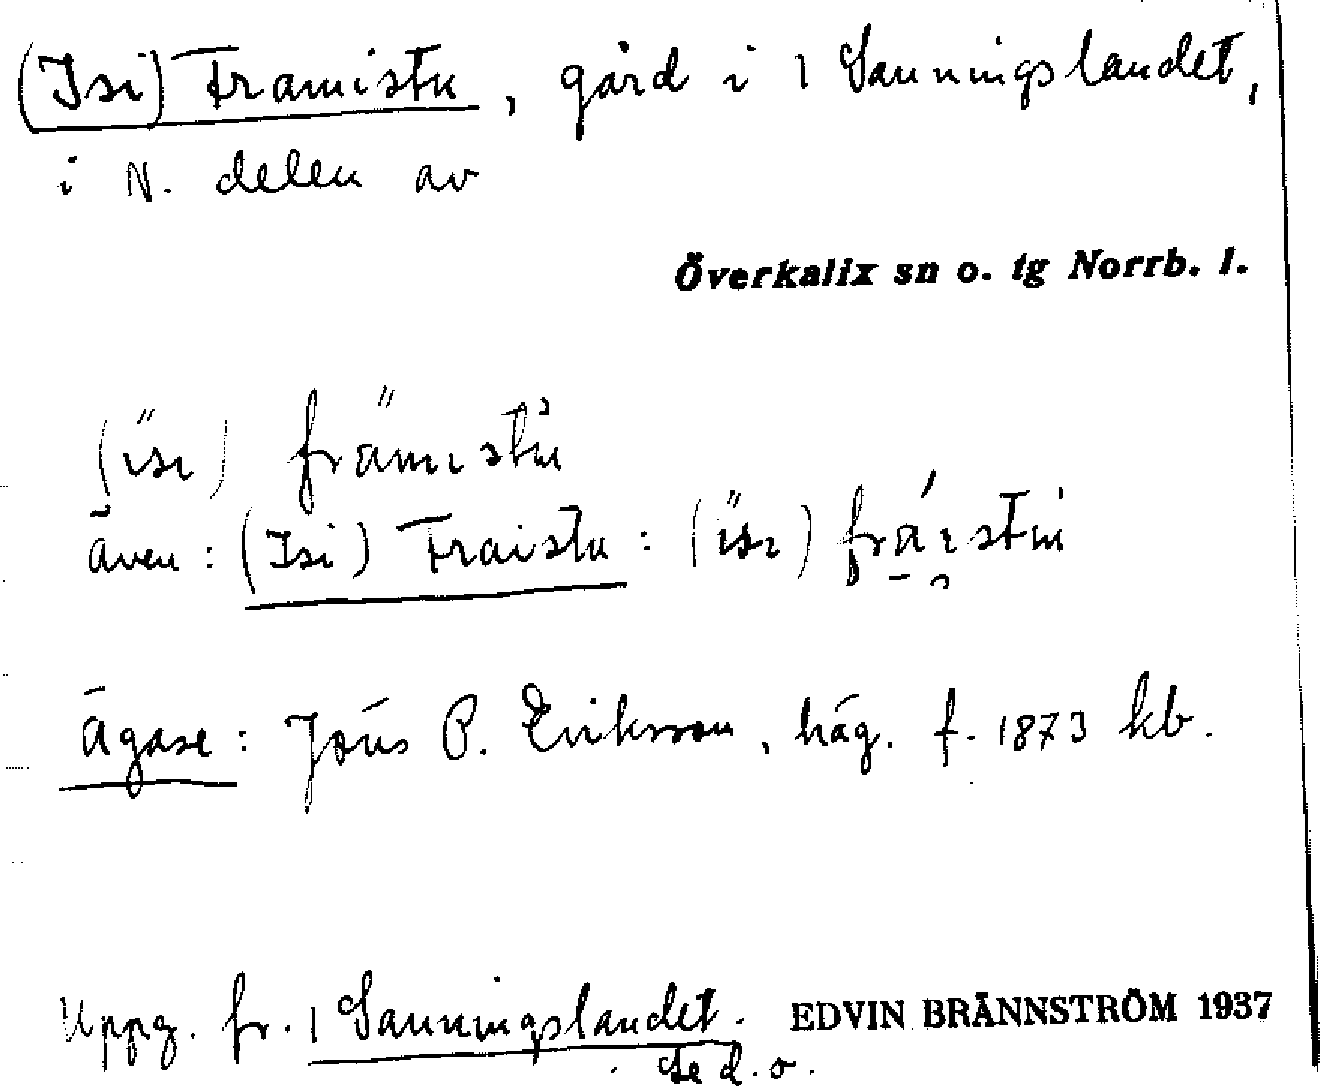 (Isi) Framistu, gård i 1 Sanningslandet,
i N. delen av
Överkalix sn o. tg Norrb. l.
även: (Isi) Fraistu:
Ägare: Jöns P. Eriksson, häg. f. 1873 kb.
Uppg. fr. 1 Sanningslandet.
Se d. o.
EDVIN BRÄNNSTRÖM 1937